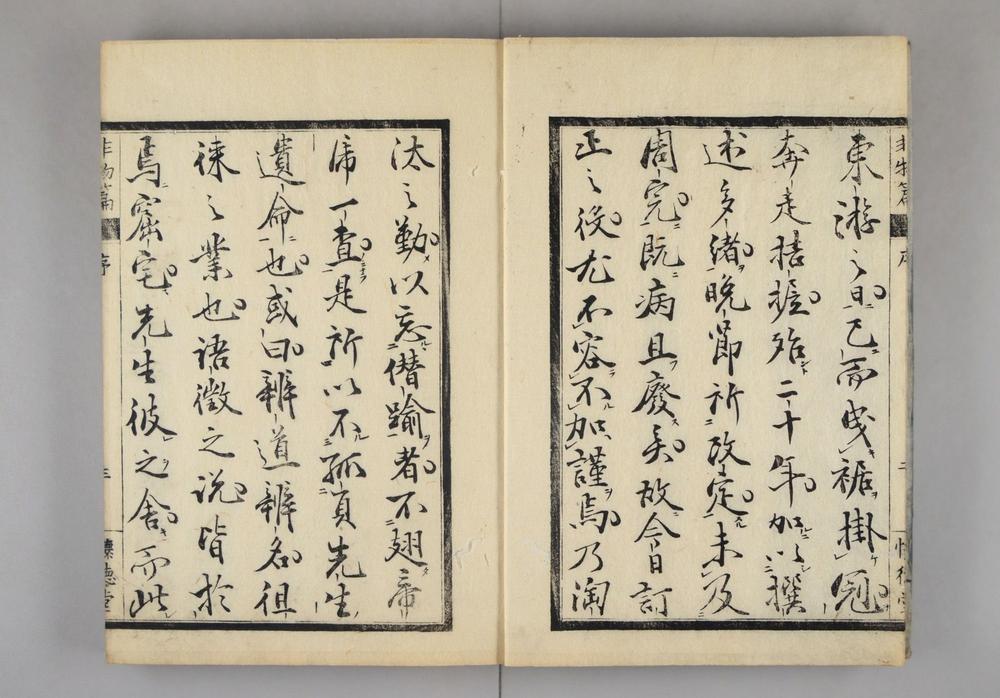 東游之日已而曳裾掛冠
奔走拮据殆二十年加以撰
述多緒晚節所改定未及
周完既病且廢矣故今日訂
正之役尤不容不加謹焉乃淘
汰之勤以忘僭踰者不翅帝
虎一查是所以不孤負先生
遺命也或曰辨道辨名徂
徠之業也語徵之説皆於
焉窟宅先生彼之舍而此
非物篇
序
三
懷德堂